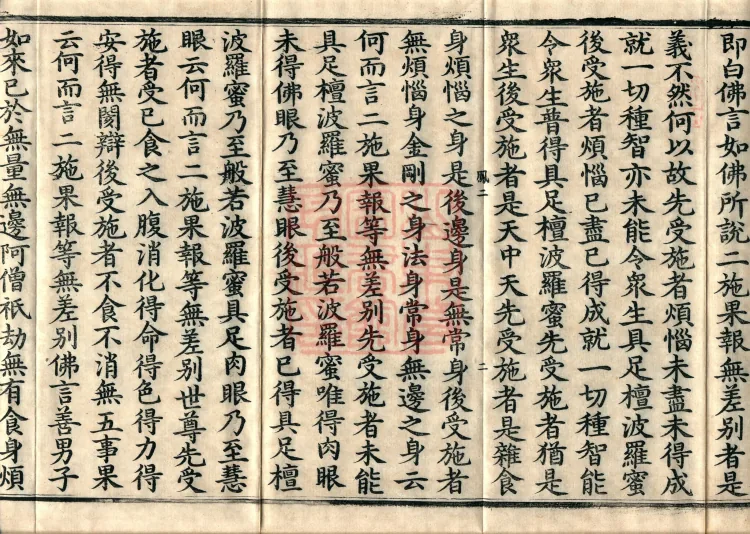 即白佛言如佛所說二施果報無差別者是
義不然何以故先受施者煩惱未盡未得成
就一切種智亦未能令衆生具足檀波羅蜜
後受施者煩惱已盡已得成就一切種智能
令衆生普得具足檀波羅蜜先受施者猶是
衆生後受施者是天中天先受施者是雜食
鳳二 二
身煩惱之身是後邊身是無常身後受施者
無煩惱身金剛之身法身常身無邊之身云
何而言二施果報等無差別先受施者未能
具足檀波羅蜜乃至般若波羅蜜唯得肉眼
未得佛眼乃至慧眼後受施者已得具足檀
波羅蜜乃至般若波羅蜜具足肉眼乃至慧
眼云何而言二施果報等無差別世尊先受
施者受已食之入腹消化得命得色得力得
安得無閡辯後受施者不食不消無五事果
云何而言二施果報等無差別佛言善男子
如來已於無量無邊阿僧祇劫無有食身煩